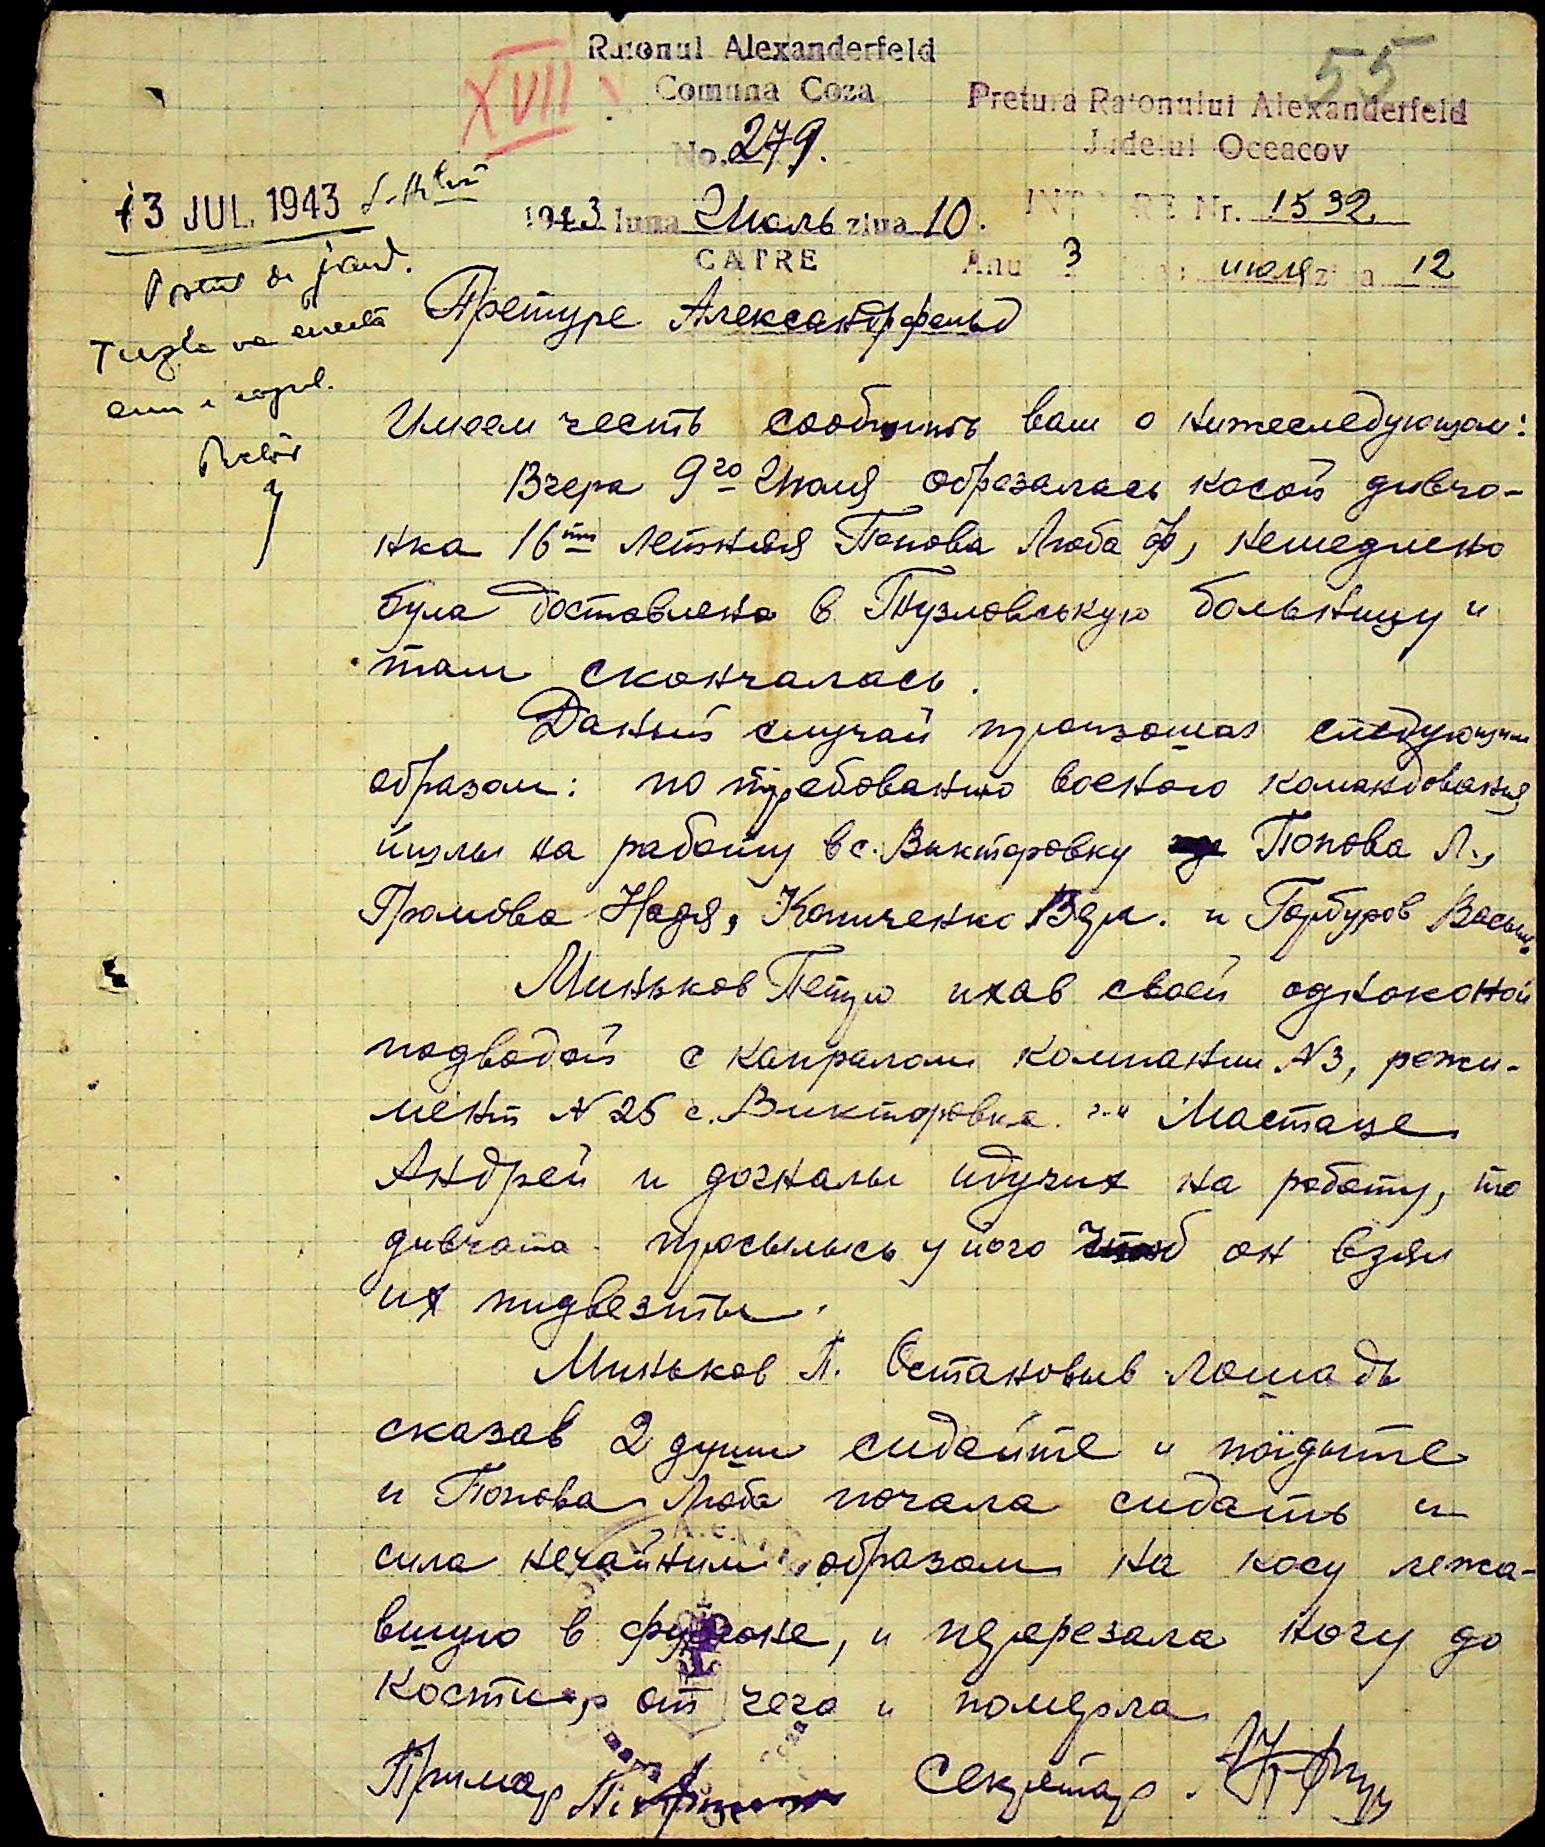 Raionul Alexanderfeld
Comuna Coza
XVII
55
No. 279.
Pretura Raionului Alexanderfeld
Judetul Oceacov
13 JUL. 1943
1943 luna Июль ziua 10.
INTRARE Nr. 1532.
CATRE
Anul 3 июля ziua 12
Postul de jand.
Tuzla va
Pretor
Претуре Александрфельд
Имеем честь сообщить вам о нижеследующом:
Вчера 9го Июля обрезалась косой дивчо-
нка 16ти летняя Попова Люба Ф, немедлено
була доставлена в Тузловськую больницу и
там скончалась.
Даный случай произошол следующим
образом: по требованию военого командования
йшлы на работу в с. Викторовку Попова Л.,
Громова Надя, Копиченко Вал. и Горбуров Васыл.
Миньков Петро ихав своей одноконой
подводой с капралом компании N3, режи-
мент N 26 с. Викторовка г-н Мастаце
Андрей и догналы идучих на работу, то
дивчата просылысь у його чтоб он взял
их пидвезты.
Миньков П. Остановыв лошадь
сказав 2 души сидайте и поїдыте
и Попова Люба почала сидать и
сила нечайним образом на косу лежа-
вшую в фургоне, и перерезала ногу до
кости, от чего и померла
Примар Секретар